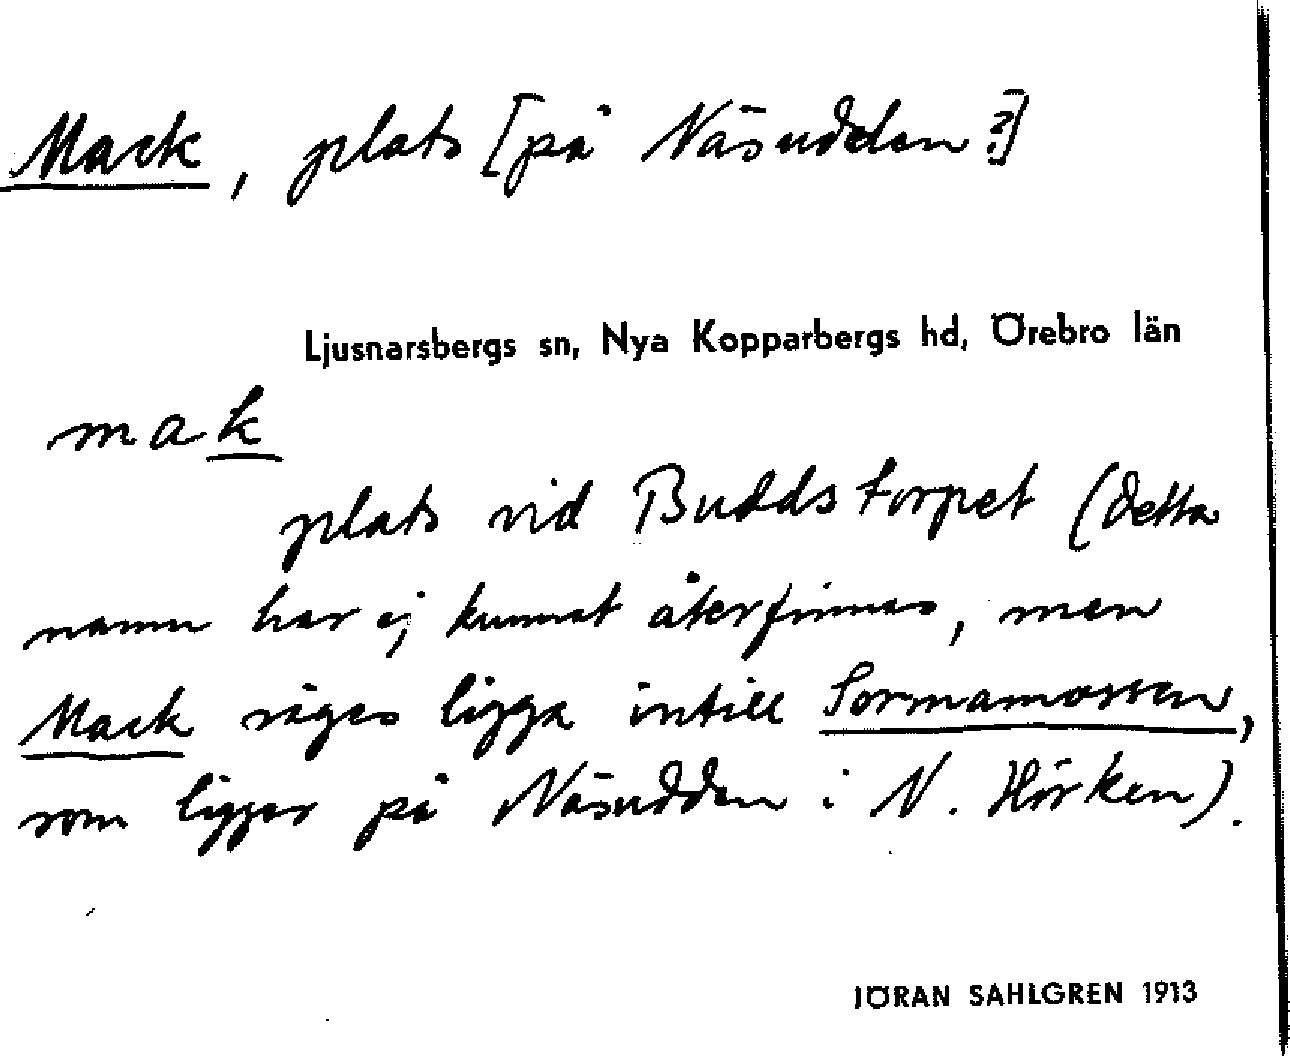 Mack, plats [på Näsudden?]
Ljusnarsbergs sn, Nya Kopparbergs hd, Örebro län
mak
plats vid Buddstorpet (detta
namn har ej kunnat återfinnas, men
Mack säges ligga intill Sormamossen,
som ligger på Näsudden i N. Hörken).
JÖRAN SAHLGREN 1913